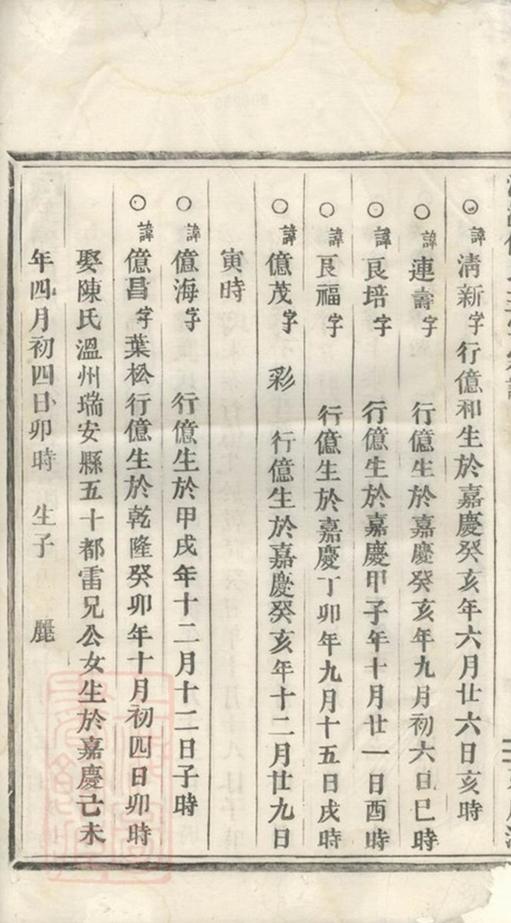 ○諱淸新字行億和生於嘉慶癸亥年六月廿六日亥時
○諱連壽字 行億生於嘉慶癸亥年九月初六日巳時
○諱良培字 行億生於嘉慶甲子年十月廿一日酉時
○諱良福字 行億生於嘉慶丁卯年九月十五日戌時
○諱億茂字彩 行億生於嘉慶癸亥年十二月廿九日
寅時
○諱億海字 行億生於甲戌年十二月十二日子時
○諱億昌字葉松行億生於乾隆癸卯年十月初四日卯時
娶陳氏溫州瑞安縣五十都雷兄公女生於嘉慶己未
年四月初四日卯時 生子 麗